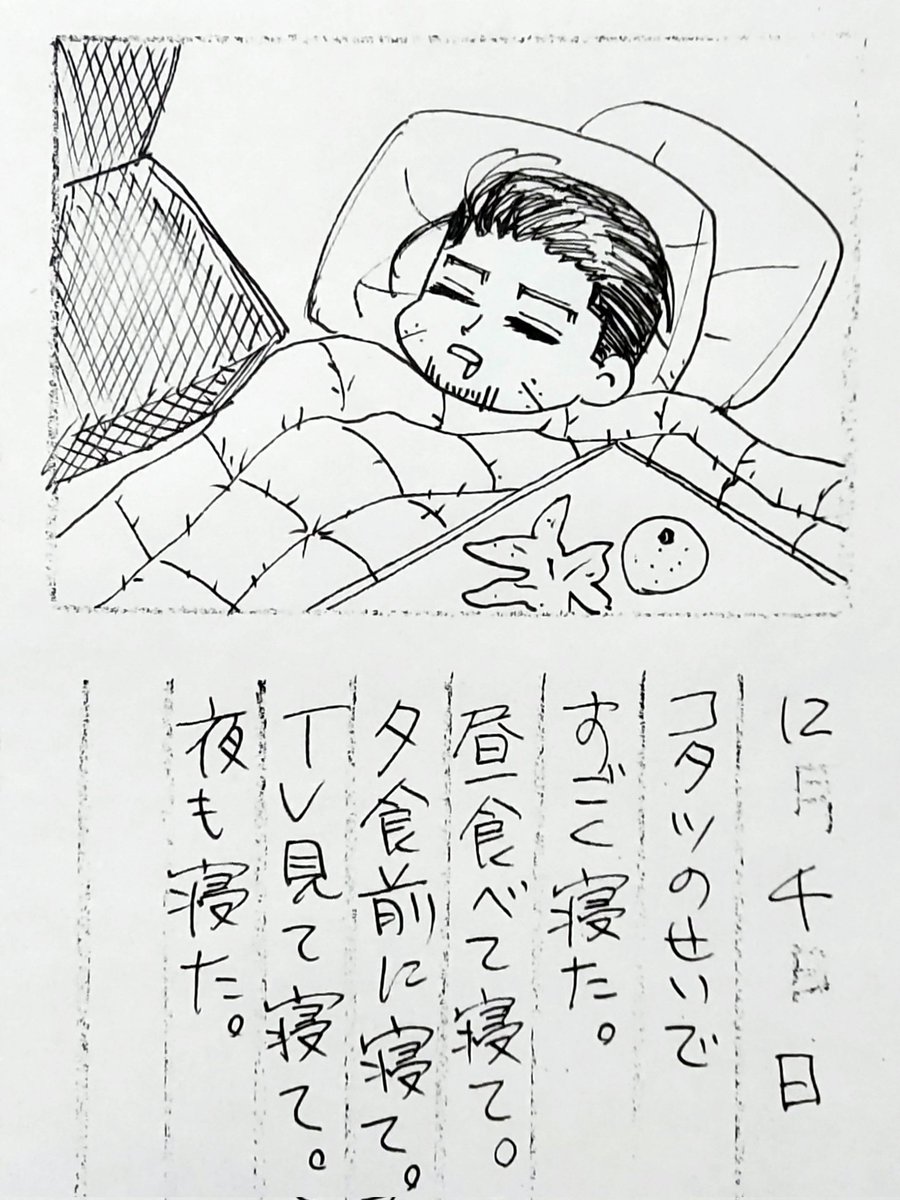 12月4日 日
コタツのせいで
すごく寝た。
昼食べて寝て。
夕食前に寝て。
TV見て寝て。
夜も寝た。